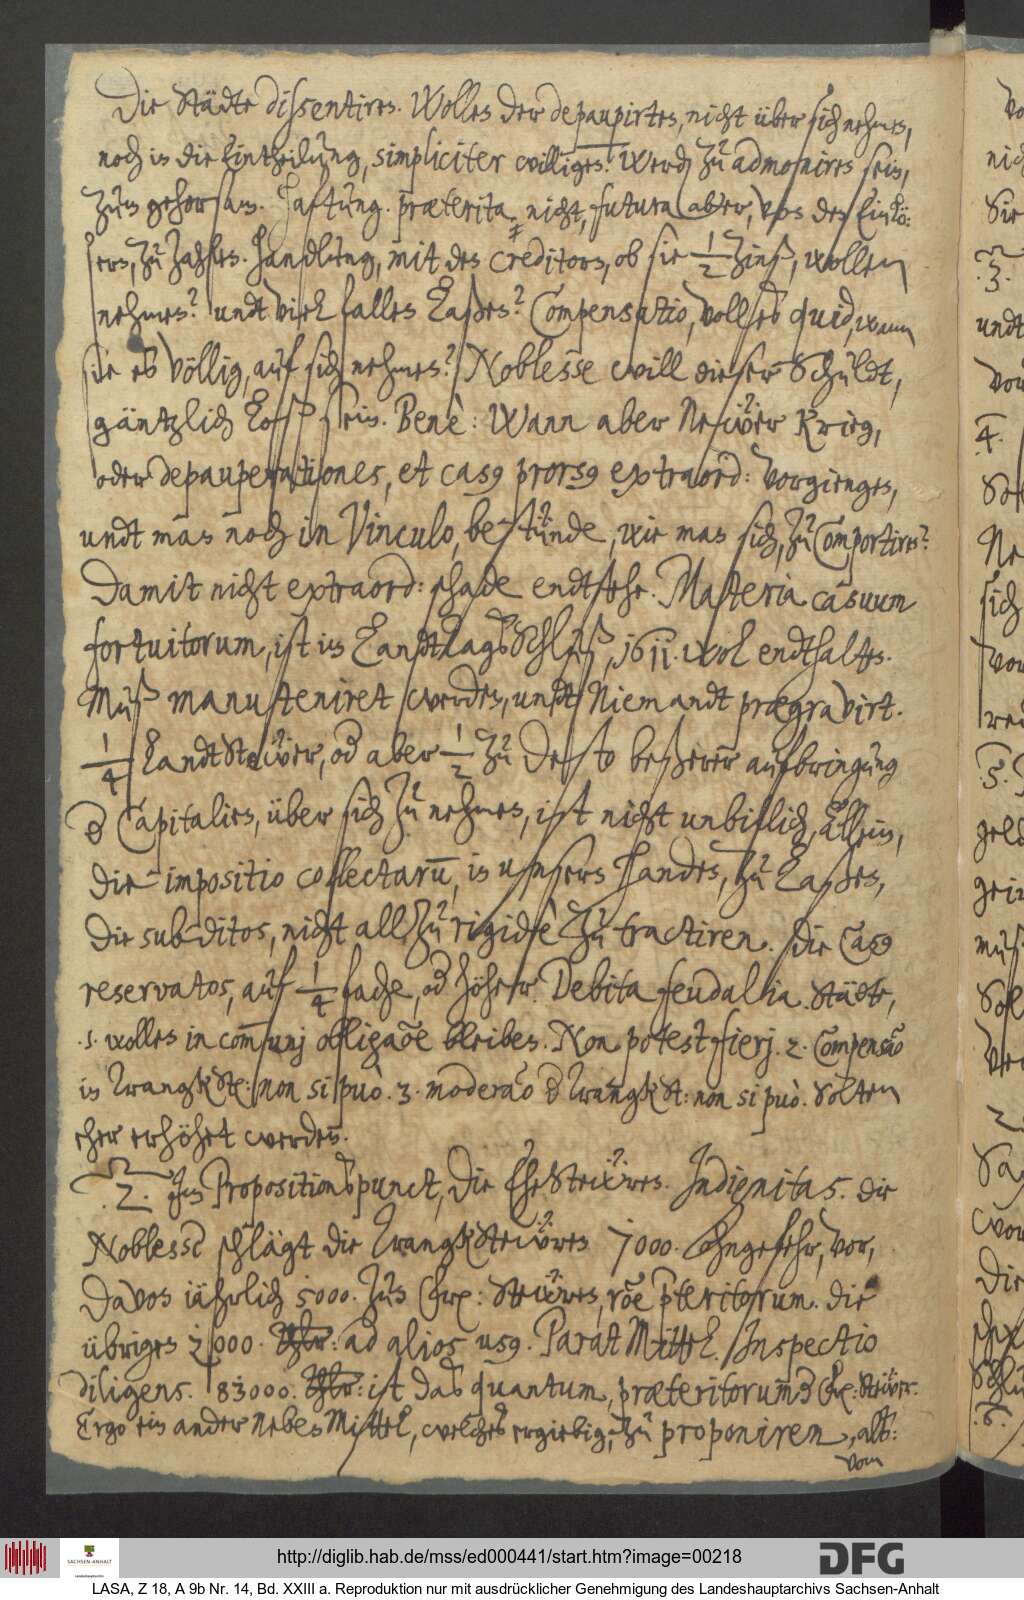 Die Städte dissentiren. Wollen der depaupirten, nicht über sich nehmen,
noch in die Eintheilung, simpliciter willigen. Werden zu admoniren sein,
zum gehorsam. Haftung. præterita nicht, futura aber, von den
zu zahlen. Handlung, mit den creditorn, ob sie 1/2 Zinß, wollen
nehmen? undt viel fallen laßen? Compensatio, vollend quid, wann
sie es völlig, auf sich nehmen? Noblesse will dieser Schuldt,
gäntzlich loß sein. Bene: Wann aber Newer Krieg,
oder depauperationes, et casus prorsus extraord: vorgiengen,
undt man noch in Vinculo, bestünde, wie man sich, zu Comportiren?
Damit nicht extraord: schade endtstehe. Materia casuum
fortuitorum, ist im LandtTagsSchluß, 1611. wol endthalten.
Muß manuteniret werden, undt Niemandt prægravirt.
1/4 LandtStewer, od aber 1/2 zu desto beßerer aufbringung
d Capitalien, über sich zu nehmen, ist nicht unbillich, Allein,
die impositio collectarum, in unsern Handen, zu laßen,
die subditos, nicht allzu rigide zu tractiren. Die Casus
reservatos, auf 1/4 fache, od höher. Debita feudalia. Städte,
.1. wollen in communj obligaõe bleiben. Non potest fierj. 2. Compensaõ
in TrangkSt: non si può. 3. moderaõ d TrangkSt: non si può. Solten
eher erhöhet werden.
2. Im Propositionspunct, die EheStewren. Indignitas. die
Noblesse schlägt die TrangkStewren 7000. Ohngefehr, vor,
Davon iährlich 5000. zun Stewren, præteritorum. die
übrigen 2000. ad alios usus. Parat Mittel. Inspectio
diligens. 83000. ist das quantum, præteritorum d Stewer.
Ergo ein ander Neben Mittel, welches ergiebig, zu proponiren, alß:
vom
http://diglib.hab.de/mss/ed000441/start.htm?image=00218
SACHSEN-ANHALT
DFG
LASA, Z 18, A 9b Nr. 14, Bd. XXIII a. Reproduktion nur mit ausdrücklicher Genehmigung des Landeshauptarchivs Sachsen-Anhalt